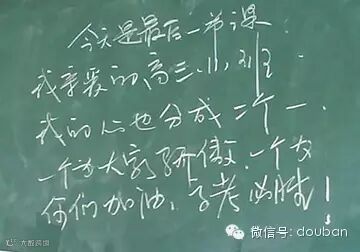 今天是最后一节课
我亲爱的高三.11.班
我的心也分成二个一.
一个为大家骄傲.一个为
你们加油.高考必胜！
微信号: douban